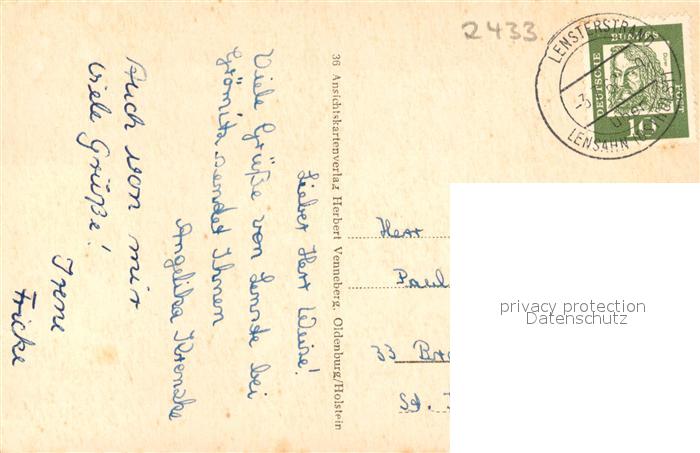 2433
LENSTERSTRAND
LENSAHN
DEUTSCHE
BUNDES
POST
10
36 Ansichtskartenverlag Herbert Venneberg, Oldenburg/Holstein
Lieber Herr Weise!
Viele Grüße von Lenste bei
Grömitz sendet Ihnen
Angelika Kroncke
Auch von mir
viele Grüße!
Irene
Fricke
Herr
Paul
33
privacy protection
Datenschutz